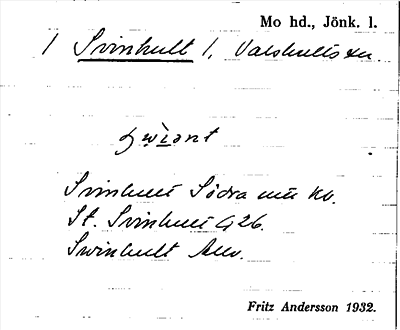 Mo hd., Jönk. l.
1 Svinhult l. Valshults äg.
Svinhult Södra
St. Svinhult G 26.
Swinhult
Fritz Andersson 1932.